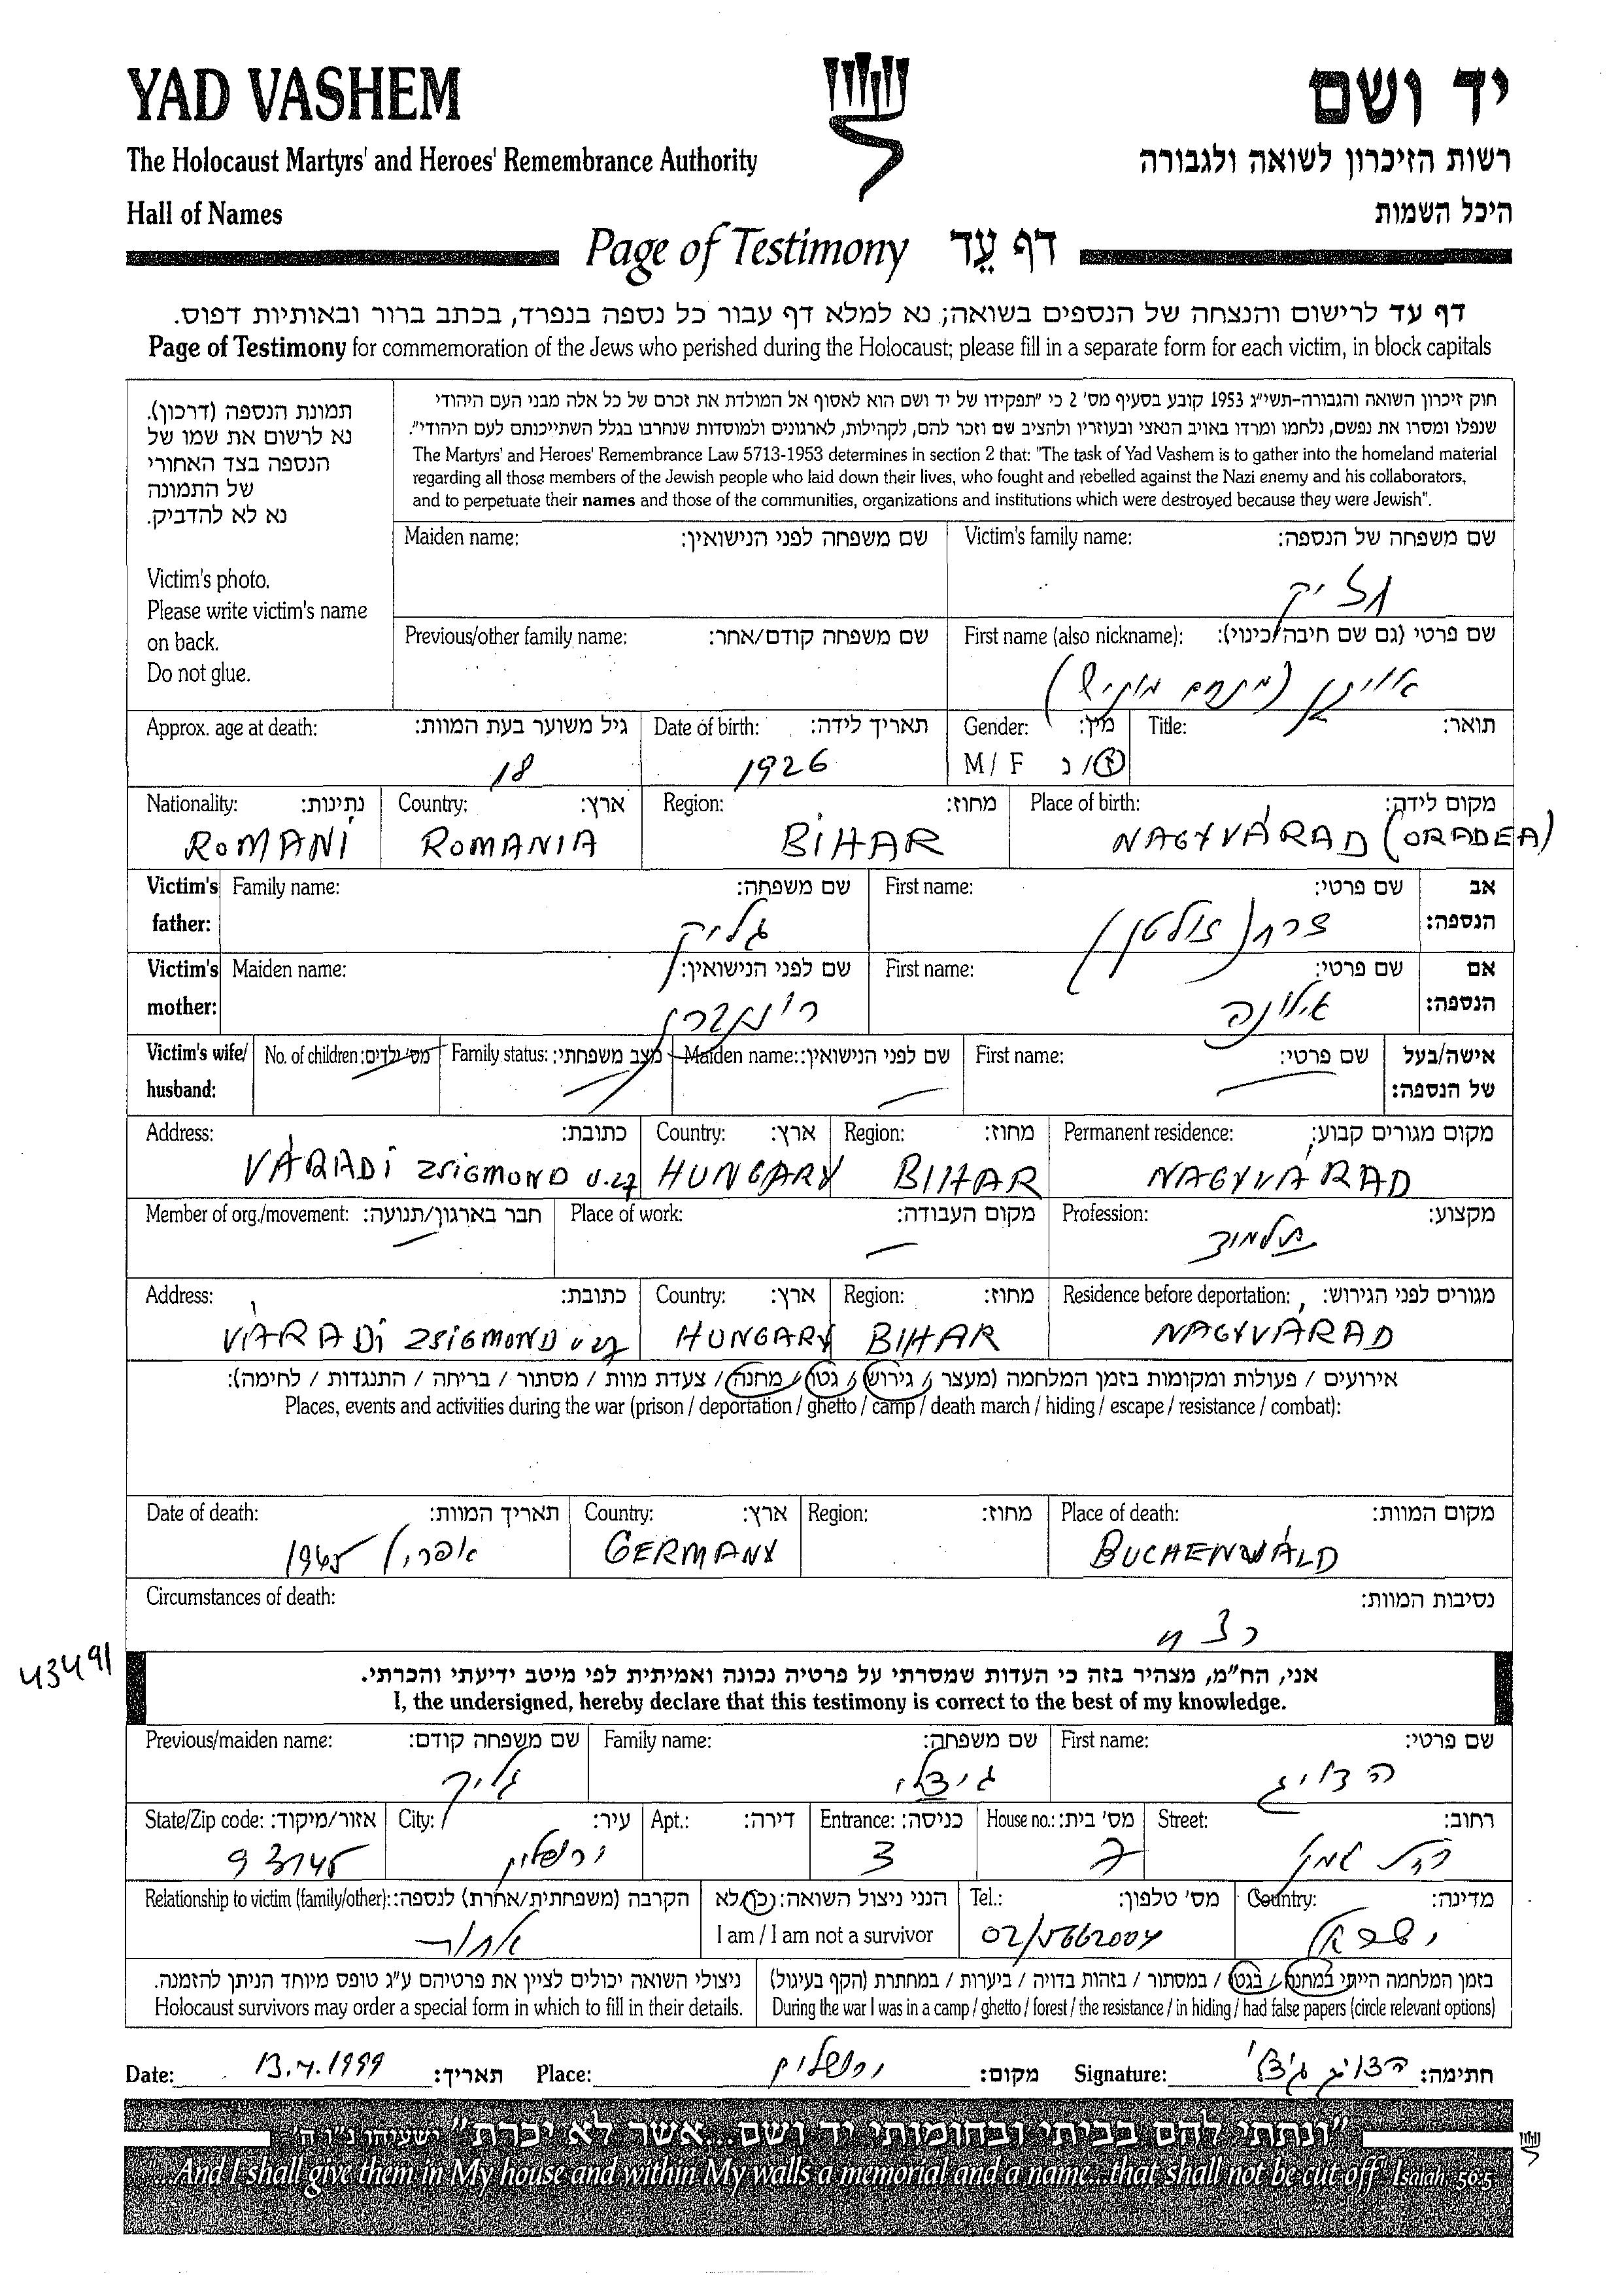 YAD VASHEM
יד ושם
The Holocaust Martyrs' and Heroes' Remembrance Authority
רשות הזיכרון לשואה ולגבורה
Hall of Names
היכל השמות
Page of Testimony דף עֵד
דף עד לרישום והנצחה של הנספים בשואה; נא למלא דף עבור כל נספה בנפרד, בכתב ברור ובאותיות דפוס.
Page of Testimony for commemoration of the Jews who perished during the Holocaust; please fill in a separate form for each victim, in block capitals
תמונת הנספה (דרכון).
נא לרשום את שמו של
הנספה בצד האחורי
של התמונה
נא לא להדביק.
Victim's photo.
Please write victim's name
on back.
Do not glue.
חוק זיכרון השואה והגבורה-תשי"ג 1953 קובע בסעיף מס' 2 כי "תפקידו של יד ושם הוא לאסוף אל המולדת את זכרם של כל אלה מבני העם היהודי
שנפלו ומסרו את נפשם, נלחמו ומרדו באויב הנאצי ובעוזריו ולהציב שם וזכר להם, לקהילות, לארגונים ולמוסדות שנחרבו בגלל השתייכותם לעם היהודי".
The Martyrs' and Heroes' Remembrance Law 5713-1953 determines in section 2 that: "The task of Yad Vashem is to gather into the homeland material
regarding all those members of the Jewish people who laid down their lives, who fought and rebelled against the Nazi enemy and his collaborators,
and to perpetuate their names and those of the communities, organizations and institutions which were destroyed because they were Jewish".
Maiden name: שם משפחה לפני הנישואין:
Victim's family name: שם משפחה של הנספה:
גליק
Previous/other family name: שם משפחה קודם/אחר:
First name (also nickname): שם פרטי (גם שם חיבה/כינוי):
Approx. age at death: גיל משוער בעת המוות:
18
Date of birth: תאריך לידה:
1926
Gender: מין:
M / F ז / נ
Title: תואר:
Nationality: נתינות:
ROMANI
Country: ארץ:
ROMANIA
Region: מחוז:
BIHAR
Place of birth: מקום לידה:
NAGYVÁRAD (ORADEA)
Victim's father: Family name: שם משפחה:
גליק
First name: שם פרטי:
אב הנספה:
Victim's mother: Maiden name: שם לפני הנישואין:
First name: שם פרטי:
אילונה
אם הנספה:
Victim's wife/ husband: No. of children: מס' ילדים:
Family status: מצב משפחתי:
Maiden name: שם לפני הנישואין:
First name: שם פרטי:
אישה/בעל של הנספה:
Address: כתובת:
VÁRADI ZSIGMOND U.27
Country: ארץ:
HUNGARY
Region: מחוז:
BIHAR
Permanent residence: מקום מגורים קבוע:
NAGYVÁRAD
Member of org./movement: חבר בארגון/תנועה:
Place of work: מקום העבודה:
Profession: מקצוע:
תלמיד
Address: כתובת:
VÁRADI ZSIGMOND U 27
Country: ארץ:
HUNGARY
Region: מחוז:
BIHAR
Residence before deportation: מגורים לפני הגירוש:
NAGYVÁRAD
אירועים / פעולות ומקומות בזמן המלחמה (מעצר / גירוש / גטו / מחנה / צעדת מוות / מסתור / בריחה / התנגדות / לחימה):
Places, events and activities during the war (prison / deportation / ghetto / camp / death march / hiding / escape / resistance / combat):
Date of death: תאריך המוות:
אפריל 1945
Country: ארץ:
GERMANY
Region: מחוז:
Place of death: מקום המוות:
BUCHENWALD
Circumstances of death: נסיבות המוות:
רצח
43491
אני, הח"מ, מצהיר בזה כי העדות שמסרתי על פרטיה נכונה ואמיתית לפי מיטב ידיעתי והכרתי.
I, the undersigned, hereby declare that this testimony is correct to the best of my knowledge.
Previous/maiden name: שם משפחה קודם:
גליק
Family name: שם משפחה:
First name: שם פרטי:
הדויג
State/Zip code: אזור/מיקוד:
93145
City: עיר:
ירושלים
Apt.: דירה:
Entrance: כניסה:
3
House no.: מס' בית:
7
Street: רחוב:
Relationship to victim (family/other): הקרבה (משפחתית/אחרת) לנספה:
אחות
הנני ניצול השואה: כן/לא
I am / I am not a survivor
Tel.: מס' טלפון:
02/5662004
Country: מדינה:
ישראל
ניצולי השואה יכולים לציין את פרטיהם ע"ג טופס מיוחד הניתן להזמנה.
Holocaust survivors may order a special form in which to fill in their details.
בזמן המלחמה הייתי במחנה / בגטו / במסתור / בזהות בדויה / ביערות / במחתרת (הקף בעיגול)
During the war I was in a camp / ghetto / forest / the resistance / in hiding / had false papers (circle relevant options)
Date: 13.4.1999 תאריך: Place: ירושלים מקום: Signature: חתימה:
"ונתתי להם בביתי ובחומותי יד ושם...אשר לא יכרת" ישעיהו נ"ו ה'
"...And I shall give them in My house and within My walls a memorial and a name...that shall not be cut off" Isaiah, 56:5